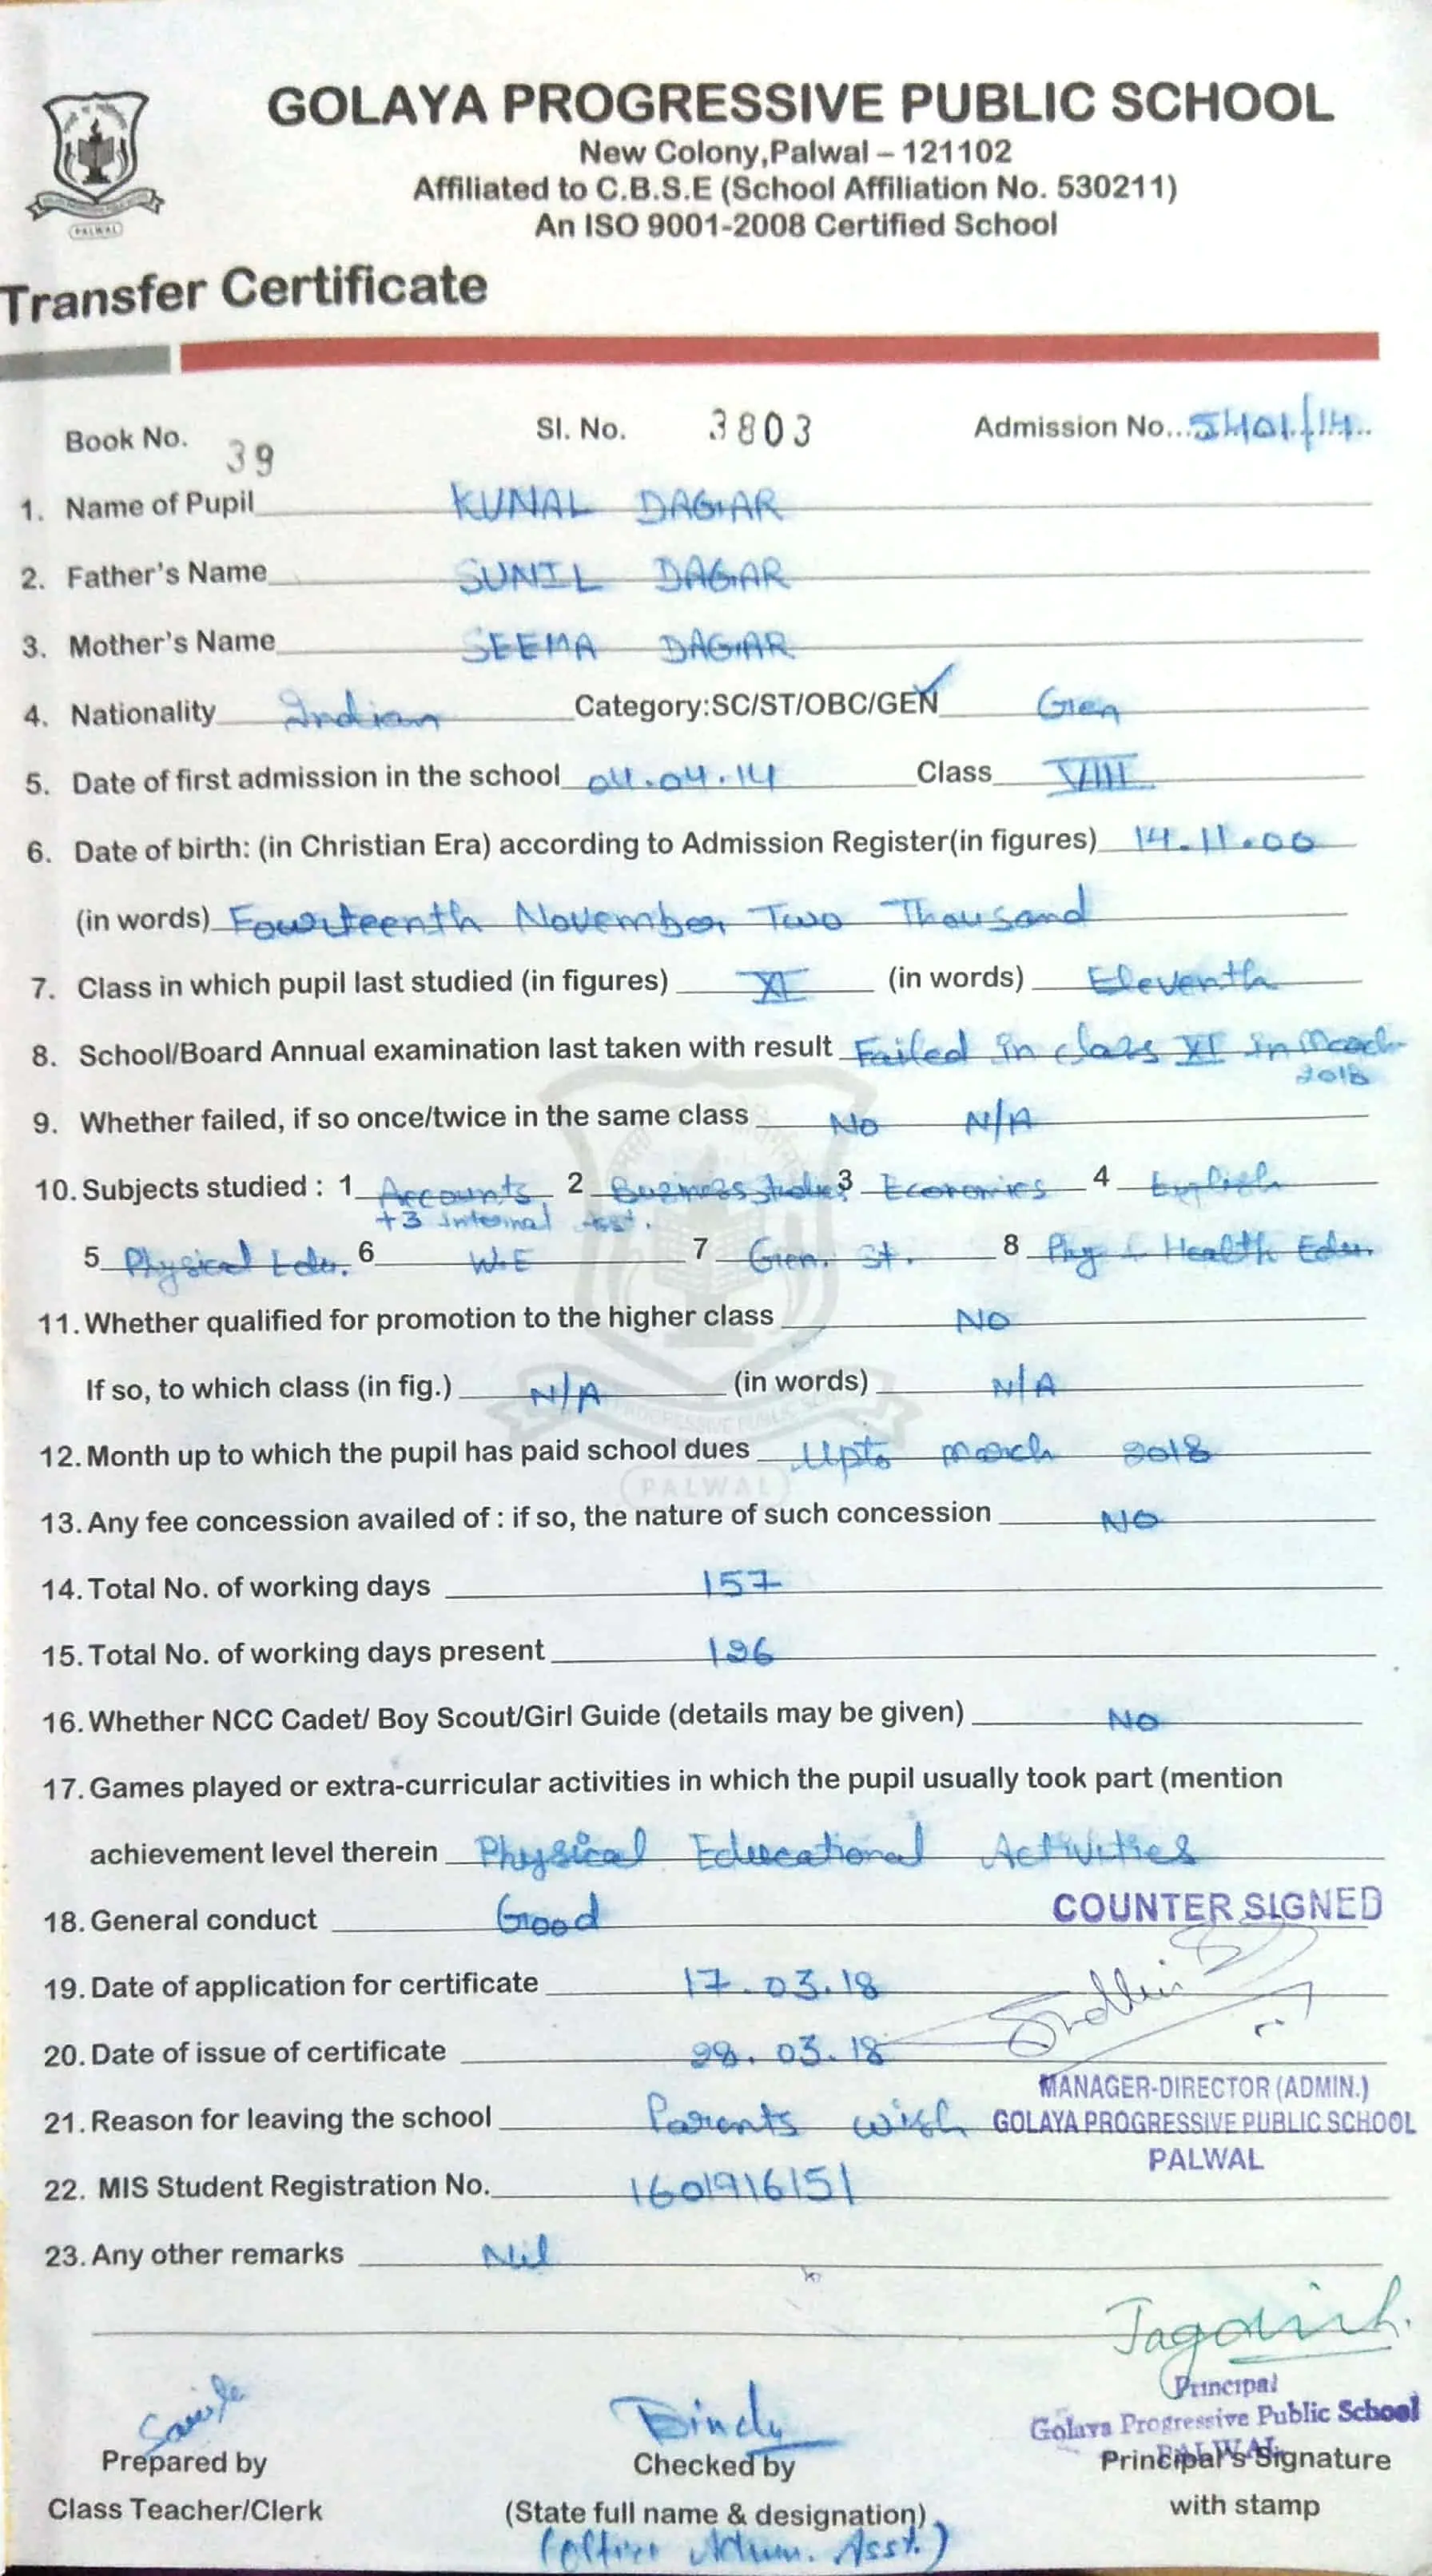 GOLAYA PROGRESSIVE PUBLIC SCHOOL
New Colony,Palwal – 121102
Affiliated to C.B.S.E (School Affiliation No. 530211)
An ISO 9001-2008 Certified School
PALWAL
Transfer Certificate
Book No. 39 Sl. No. 3803 Admission No...5401/14..
1. Name of Pupil KUNAL DAGAR
2. Father's Name SUNIL DAGAR
3. Mother's Name SEEMA DAGAR
4. Nationality Indian Category:SC/ST/OBC/GEN Gen
5. Date of first admission in the school 04.04.14 Class VIII
6. Date of birth: (in Christian Era) according to Admission Register(in figures) 14.11.00
(in words) Fourteenth November Two Thousand
7. Class in which pupil last studied (in figures) XI (in words) Eleventh
8. School/Board Annual examination last taken with result Failed in class XI in March
2018
9. Whether failed, if so once/twice in the same class No N/A
10. Subjects studied : 1 Accounts 2 Business Studies 3 Economics 4 English
+3 Internal Asst.
5 Physical Edu. 6 W.E 7 Gen. St. 8 Phy & Health Edu.
11. Whether qualified for promotion to the higher class NO
If so, to which class (in fig.) N/A (in words) N/A
PROGRESSIVE PUBLIC
12. Month up to which the pupil has paid school dues Upto March 2018
PALWAL
13. Any fee concession availed of : if so, the nature of such concession NO
14. Total No. of working days 157
15. Total No. of working days present 126
16. Whether NCC Cadet/ Boy Scout/Girl Guide (details may be given) NO
17. Games played or extra-curricular activities in which the pupil usually took part (mention
achievement level therein Physical Educational Activities
18. General conduct Good
COUNTER SIGNED
19. Date of application for certificate 17.03.18
20. Date of issue of certificate 28.03.18
MANAGER-DIRECTOR (ADMIN.)
21. Reason for leaving the school Parents wish
GOLAYA PROGRESSIVE PUBLIC SCHOOL
PALWAL
22. MIS Student Registration No. 1601916151
23. Any other remarks Nil
Principal
Golaya Progressive Public School
PALWAL
Bindu
Prepared by Checked by Principal's Signature
Class Teacher/Clerk (State full name & designation) with stamp
(Office Admn. Asst.)